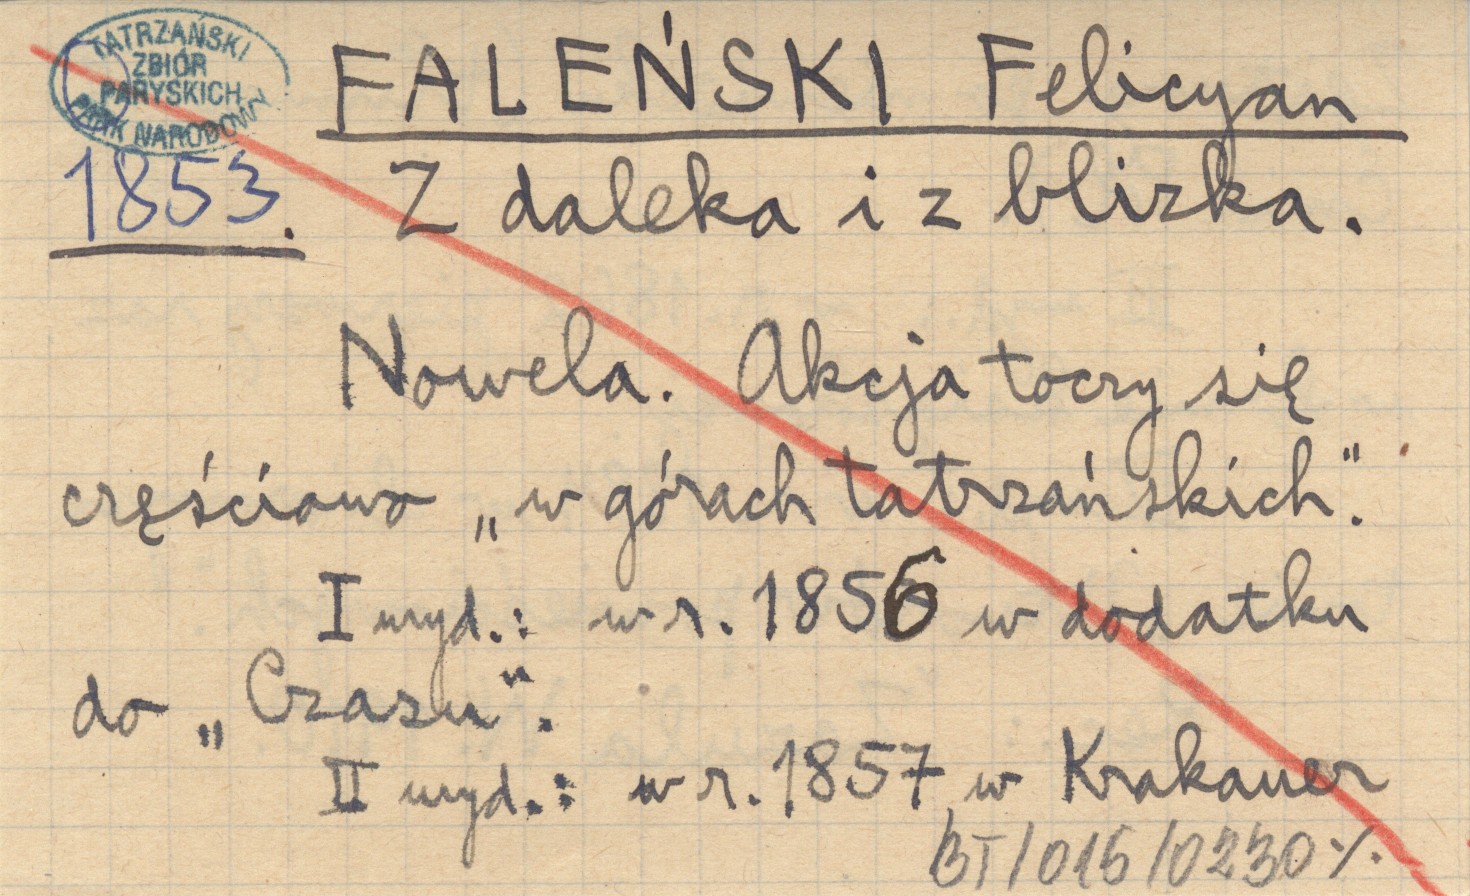 TATRZAŃSKI
ZBIÓR
PARYSKICH
PARK NARODOWY
FALEŃSKI Felicyan
1853. Z daleka i z blizka.
Nowela. Akcja toczy się
częściowo „w górach tatrzańskich".
I wyd.: w r. 1856 w dodatku
do „Czasu".
II wyd.: w r. 1857 w Krakauer
BT/015/0230 ٪.